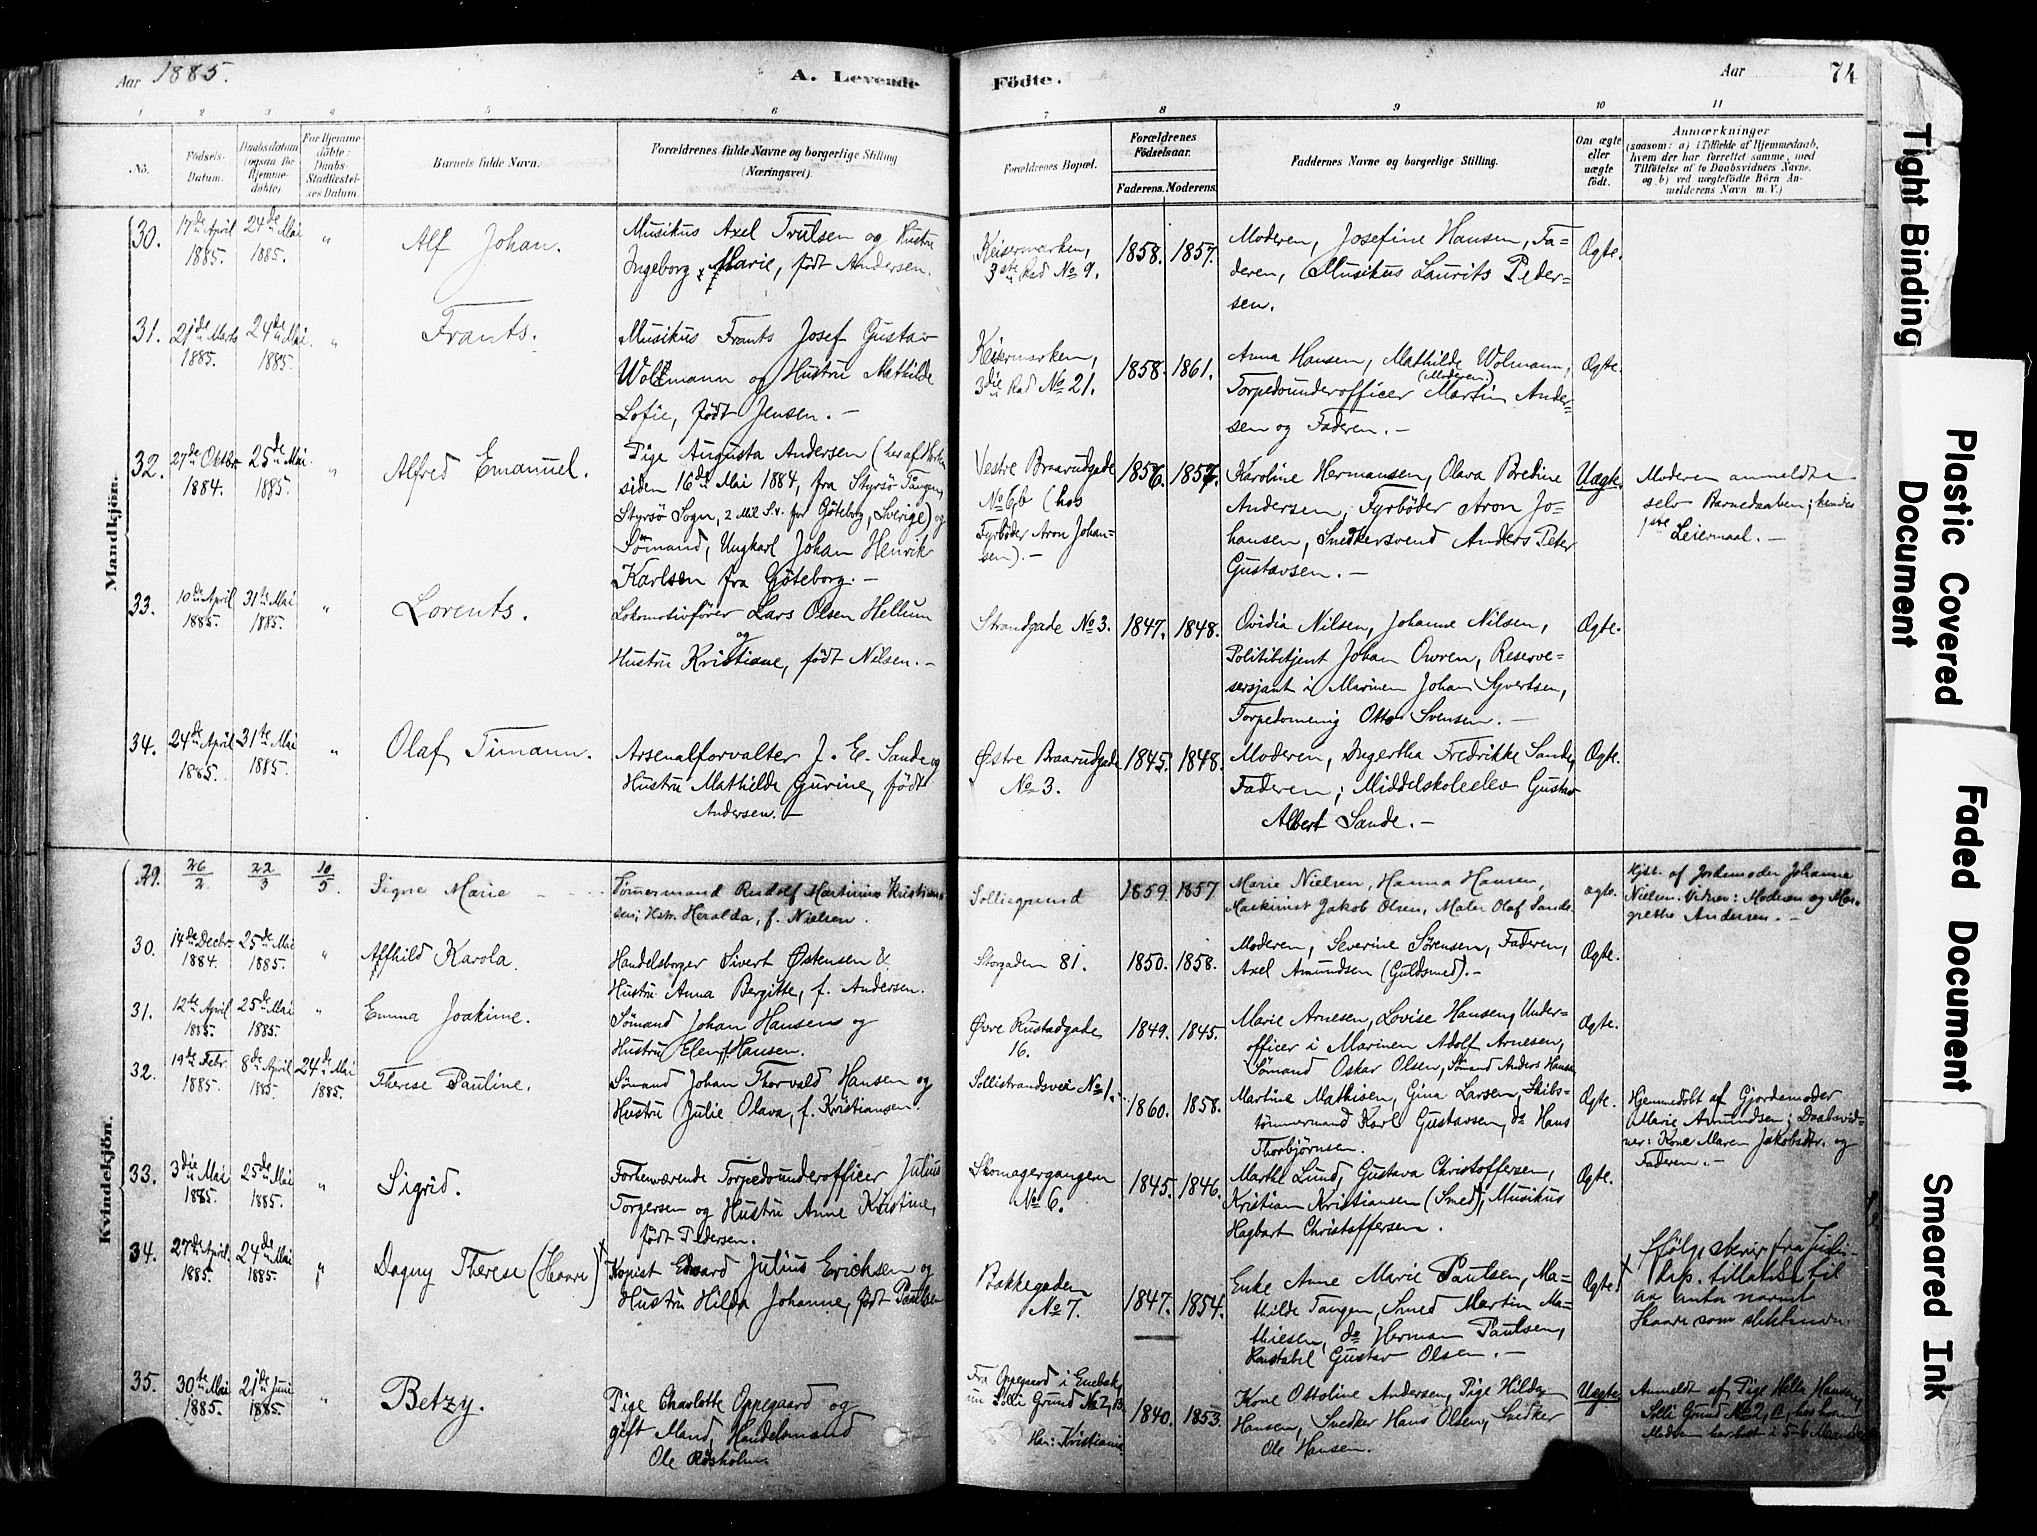 Aar 1885.
A. Levende
Födte.
Aar
74
1 2 3 4 5 6 7 8 9 10 11
No.
Födsels-
Datum.
Daabsdatum
(ogsaa for
Hjemme-
döbte)
For Hjemme-
döbte:
Daabs-
Stadfæstel-
ses Datum
Barnets fulde Navn.
Forældrenes fulde Navne og borgerlige Stilling
(Næringsvei).
Forældrenes Bopæl.
Forældrenes
Födselsaar.
Faderens. Moderens.
Faddernes Navne og borgerlige Stilling.
Om ægte
eller
uægte
født.
Anmærkninger
(saasom: a) i Tilfælde af Hjemmedaab,
hvem der har forrettet samme, med
Tilföielse af to Daabsvidners Navne,
og b) ved uægtefödte Börn An-
melderens Navn m. V.)
Mandkjön.
30.
17de April
1885.
24de Mai
1885.
"
Alf Johan.
Musikus Axel Trulsen og Hustru
Ingeborg Marie, født Andersen.
Keisermarken,
3die Rad No 9.
1858. 1857.
Moderen, Josefine Hansen, Fa-
deren, Musikus Laurits Peder-
sen.
Ægte.
31.
21de Marts
1885.
24de Mai
1885.
"
Frants.
Musikus Frants Josef Gustav
Wolmann og Hustru Mathilde
Sofie, født Jensen. –
Keisermarken,
3die Rad No 21.
1858. 1861.
Anna Hansen, Mathilde Wolmann,
(Moderen)
Torpedounderofficer Martin Ander-
sen og Faderen. –
Ægte.
32.
27de Oktbr.
1884.
25de Mai
1885.
"
Alfred Emanuel.
Pige Augusta Andersen (her af Horten
siden 16de Mai 1884, fra Styrsö Tången,
Styrsö Sogn, 2 Mil Sv. for Göteborg, Sverige) og
Sømand, Ungkarl Johan Henrik
Karlsen fra Göteborg. –
Vestre Braarudgade
No 6,b (hos
Fyrbøder Aron Johan-
sen). –
1856. 1857.
Karoline Hermansen, Olava Bredine
Andersen, Fyrbøder Aron Jo-
hansen, Snedkersvend Anders Peter
Gustavsen. –
Uægte.
Moderen anmeldte
selv Barnedaaben; hendes
1ste Leiermaal. –
33.
10de April
1885.
31te Mai
1885.
"
Lorents.
Lokomotivfører Lars Olsen Hellum
og
Hustru Kristiane, født Nilsen. –
Strandgade No 3.
1847. 1848.
Ovidia Nilsen, Johanne Nilsen,
Politibetjent Johan Owren, Reserve-
sersjant i Marinen Johan Syvertsen,
Torpedomenig Otto Svensen. –
Ægte.
34.
24de April
1885.
31te Mai
1885.
"
Olaf Timann.
Arsenalforvalter J. E. Sande og
Hustru Mathilde Gurine, født
Andersen. –
Østre Braarudgade
No 3.
1845. 1848.
Moderen, Degertha Fredrikke Sande,
Faderen; Middelskoleelev Gustav
Albert Sande. –
Ægte.
Kvindekjön.
29.
26/2
22/3
10/5.
Signe Marie
Tømmermand Rudolf Martinius Kristian-
sen; Hstr. Heralda, f. Nielsen.
Sollisgrund
1859 1857
Marie Nielsen, Hanna Hansen,
Maskinist Jakob Olsen, Maler Olaf Sande
ægte.
Hjdt. af Jordemoder Johanne
Nielsen. Vidner: Moderen og Mar-
grethe Andersen. –
30.
14de Decbr.
1884.
25de Mai
1885.
"
Affhild Karola.
Handelsborger Sivert Østensen &
Hustru Anna Bergitte, f. Andersen.
Storgaden 81.
1850. 1858.
Moderen, Severine Sørensen, Faderen,
Axel Amundsen (Guldsmed). –
Ægte.
31.
12te April
1885.
25de Mai
1885.
"
Emma Joakime.
Sømand Johan Hansen og
Hustru Elen Hansen.
Øvre Rustadgade
16.
1849. 1845.
Marie Arnesen, Lovise Hansen, Under-
officer i Marinen Adolf Arnesen,
Sømand Oskar Olsen, Sømand Anders Hansen
Ægte.
32.
19de Febr.
1885.
8de April
1885.
24de Mai
1885.
Therese Pauline.
Sømand Johan Thorvald Hansen og
Hustru Julie Olava, f. Kristiansen.
Sollistrandsvei No 1.
1860. 1858.
Martine Mathisen, Gina Larsen, Skibs-
tømmermand Karl Gustavsen, do Hans
Thorbjørnsen.
Ægte.
Hjemmedøbt af Gjordemoder
Marie Amundsen; Daabsvid-
ner: Kone Maren Jakobsdtr. og
Faderen. –
33.
3die Mai
1885.
25de Mai
1885.
"
Sigrid.
Forhenværende Torpedounderofficer Julius
Torgersen og Hustru Anne Kristine,
født Pedersen.
Skomagergangen
No 6.
1845. 1846.
Marthe Lund, Gustava Christoffersen,
Kristian Kristiansen (Smed), Musikus
Hagbart Christoffersen.
Ægte.
34.
27de April
1885.
24de Mai
1885.
"
Dagny Therese (Haare)
Kopist Edvard Julius Erichsen og
Hustru Hilda Johanne, født Paulsen
Bakkegaden
No 7.
1847. 1854.
Enke Anne Marie Paulsen, Ma-
thilde Tangen, Smed Martin Ma-
thiesen, do Herman Paulsen,
Konstabel Gustav Olsen. –
Ægte.
Ifølge skriv fra Justis-
dep. tillatelse til
at anta navnet
Haare som slektsnavn.
35.
30te Mai
1885.
21de Juni
1885.
"
Betzy.
Pige Charlotte Oppegaard og
gift Mand, Handelsmand
Ole Røsholm.
Fra Oppegaard i Enebak,
nu Solli Grund No 2, B.
Han: Kristiania
1840. 1853.
Kone Ottoline Andersen, Pige Hilda
Hansen, Snedker Hans Olsen, Snedker
Ole Hansen.
Uægte
Anmeldt af Pige Helle Hansen,
Solli Grund No 2, B, hos hvem
Moderen har boet i 5-6 Maaneder
Tight Binding
Plastic Covered
Document
Faded Document
Smeared Ink